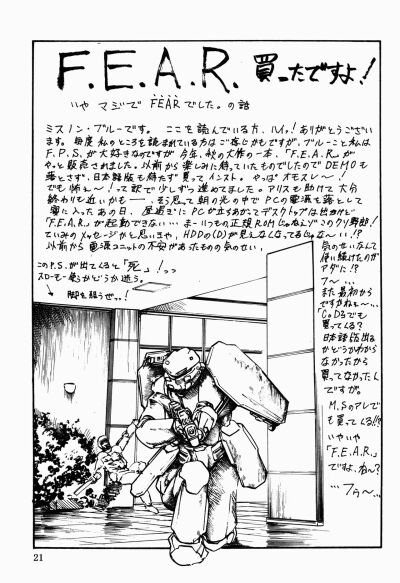 F.E.A.R. 買ったですよ!
いや マジで FEARでした。の話
ミスノン・ブルーです。 ここを読んでいる方、ハイッ! ありがとうござい
ます。毎度 私のところを読まれている方は ご存じかもですが、ブルーこと私は
F.P.S.が大好きなのですが 今年、秋の大作の一本、「F.E.A.R.」が
やっと販売されました。以前から楽しみに待っていたものでしたので DEMOも
落とさず、日本語版も待たず買って インスト。 やっぱ オモスレー!
でも 怖ぇー! って訳で少しずつ進めてました。アリスも助けて 大分
終わりも近いかも――、そう思って 朝の光の中で PCの電源を落として
寝に入った あの日、昼過ぎに PCが立ちあがってデスクトップは出たけど
「F.E.A.R.」が起動できない…まーりつもの正規ROMじゃねえゾ このクソ野郎!
ていみの メッセージかと思いきや、HDDの(D)が見えなくなってるじゃな〜い!?
以前から 電源ユニットの不安があったもの 気のせい,
気のせいなんて
使い続けたのが
アダに!?
フ〜…
また最初から
ですかねぇ〜…
「CoD2でも
買ってくる?
日本語版出る
かどうかわから
なかったから
買ってなかったん
ですが。
M.Sのアレで
も買ってくる!!
いやいや
「F.E.A.R.」
ですよ、ねぇ〜?
…フゥ〜…
このP.S.が出てくると「死」!っっ
スローモー使うかどうか迷う。
脚を狙うぜっ!
21